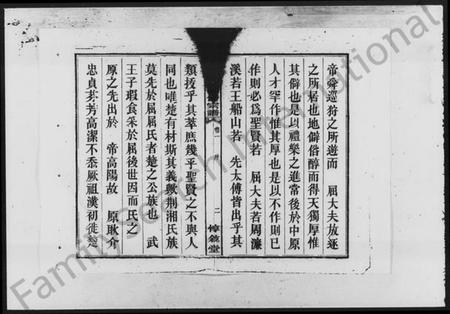 帝舜巡狩之所遊而 屈大夫放逐
之所居也地僻俗醇而得天獨厚惟
其僻也是以禮樂之進常後於中原
人才罕作惟其厚也是以不作則已
作則必為聖賢若 屈大夫若周濂
溪若王船山若 先太傅皆出乎其
類拔乎其萃庶幾乎聖賢之不與人
同也嘆楚有材斯其義歟荆湘氏族
莫先於屈屈氏者楚之公族也 武
王子瑕食采於屈後世因而氏之
原之先出於 帝高陽故 原耿介
忠貞芬芳高潔不忝厥祖漢初徙楚
卷一
二
惇敘堂
FamilySearch International